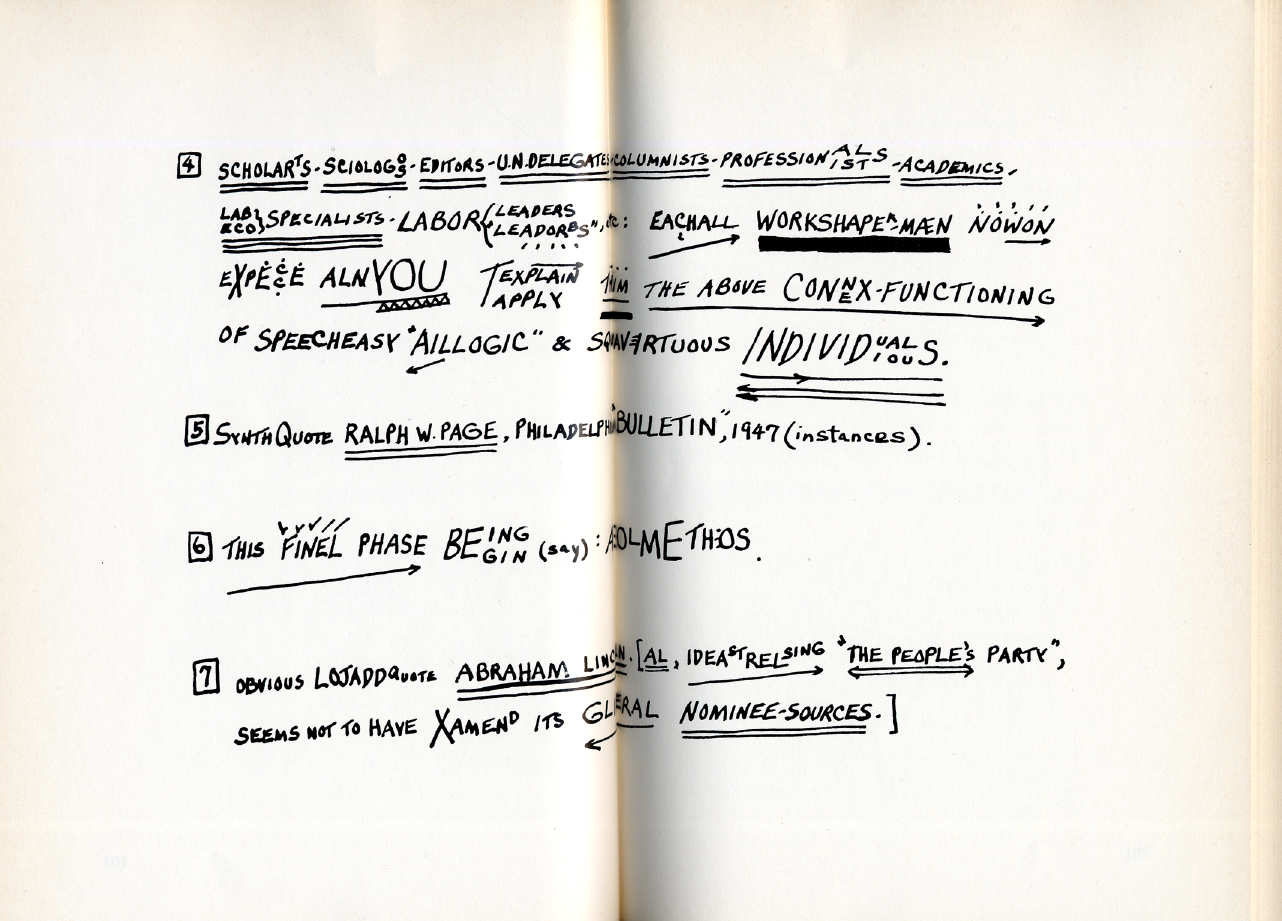 4 SCHOLARTS - SCIOLOGOS - EDITORS - U.N. DELEGATES - COLUMNISTS - PROFESSIONALS/ISTS - ACADEMICS,
LAB/ECO} SPECIALISTS - LABOR {LEADERS/LEADORES", etc: EACHALL WORKSHAPER-MÆN NOWON
ALNYOU EXPLAIN/APPLY THE ABOVE CONNEX-FUNCTIONING
OF SPEECHEASY "AILLOGIC" & INDIVIDUALS/IOUS.
5 SYNTHQUOTE RALPH W. PAGE, PHILADELPHIA "BULLETIN", 1947 (instances).
6 THIS FINEL PHASE BEING/GIN (say):
7 OBVIOUS LOJADDQUOTE ABRAHAM LINCOLN. [AL, IDEASTRELSING "THE PEOPLE'S PARTY",
SEEMS NOT TO HAVE XAMEND ITS NOMINEE-SOURCES.]